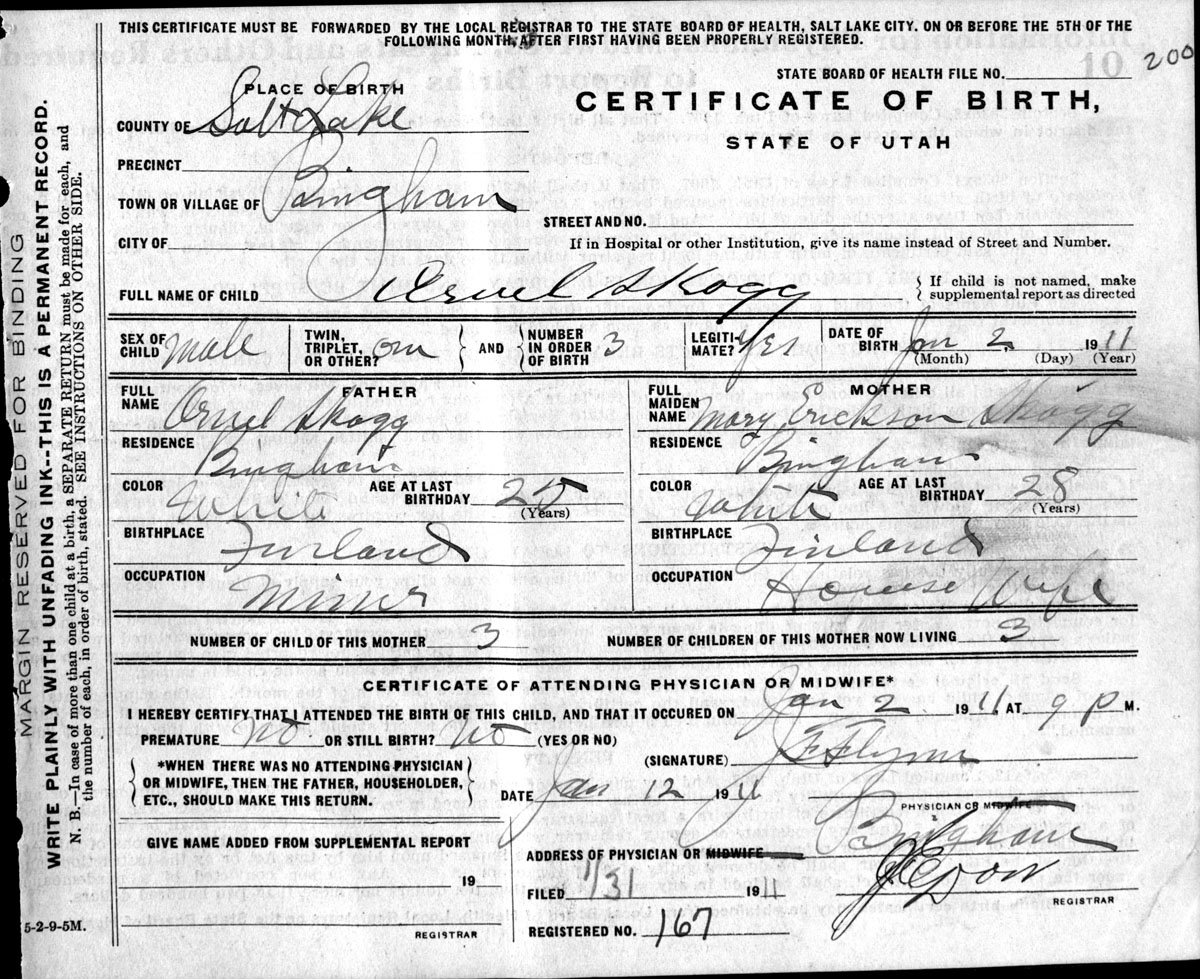 THIS CERTIFICATE MUST BE FORWARDED BY THE LOCAL REGISTRAR TO THE STATE BOARD OF HEALTH, SALT LAKE CITY. ON OR BEFORE THE 5TH OF THE
FOLLOWING MONTH, AFTER FIRST HAVING BEEN PROPERLY REGISTERED.
200
STATE BOARD OF HEALTH FILE NO.
PLACE OF BIRTH
CERTIFICATE OF BIRTH,
STATE OF UTAH
COUNTY OF Salt Lake
PRECINCT
TOWN OR VILLAGE OF Bingham
STREET AND NO.
CITY OF
If in Hospital or other Institution, give its name instead of Street and Number.
FULL NAME OF CHILD Orvel Skogg
If child is not named, make
supplemental report as directed
SEX OF CHILD Male
TWIN, TRIPLET, OR OTHER? one
AND NUMBER IN ORDER OF BIRTH 3
LEGITIMATE? Yes
DATE OF BIRTH Jan 2 1911
(Month) (Day) (Year)
FATHER
FULL NAME Orvel Skogg
RESIDENCE Bingham
COLOR White
AGE AT LAST BIRTHDAY 25 (Years)
BIRTHPLACE Finland
OCCUPATION Miner
MOTHER
FULL MAIDEN NAME Mary Erickson Skogg
RESIDENCE Bingham
COLOR White
AGE AT LAST BIRTHDAY 28 (Years)
BIRTHPLACE Finland
OCCUPATION House Wife
NUMBER OF CHILD OF THIS MOTHER 3 NUMBER OF CHILDREN OF THIS MOTHER NOW LIVING 3
CERTIFICATE OF ATTENDING PHYSICIAN OR MIDWIFE*
I HEREBY CERTIFY THAT I ATTENDED THE BIRTH OF THIS CHILD, AND THAT IT OCCURED ON Jan 2 1911 AT 9 P M.
PREMATURE No OR STILL BIRTH? No (YES OR NO)
(SIGNATURE) F Flynn
*WHEN THERE WAS NO ATTENDING PHYSICIAN
OR MIDWIFE, THEN THE FATHER, HOUSEHOLDER,
ETC., SHOULD MAKE THIS RETURN.
DATE Jan 12 1911
PHYSICIAN OR MIDWIFE
GIVE NAME ADDED FROM SUPPLEMENTAL REPORT
19
REGISTRAR
ADDRESS OF PHYSICIAN OR MIDWIFE Bingham
FILED 1/31 1911
REGISTRAR
REGISTERED NO. 167
5-2-9-5M.
MARGIN RESERVED FOR BINDING
WRITE PLAINLY WITH UNFADING INK--THIS IS A PERMANENT RECORD.
N. B.—In case of more than one child at a birth, a SEPARATE RETURN must be made for each, and
the number of each, in order of birth, stated. SEE INSTRUCTIONS ON OTHER SIDE.